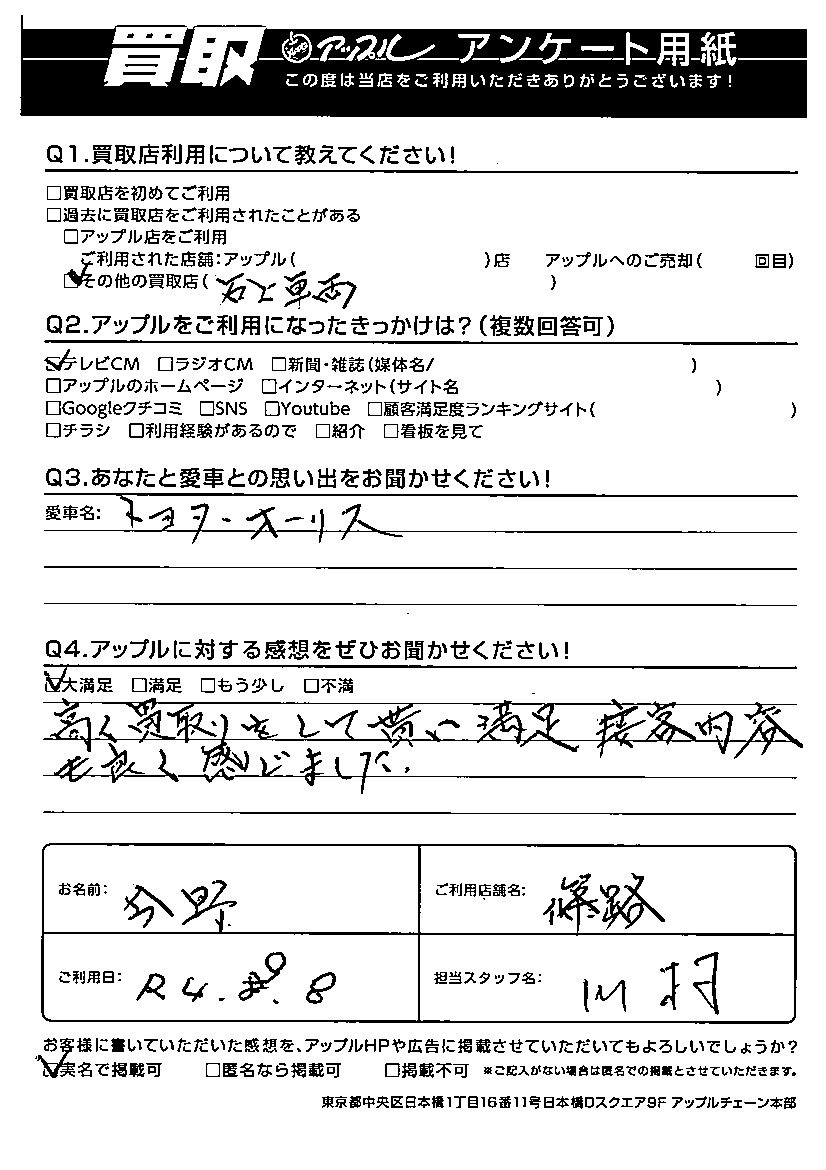 買取 アップル アンケート用紙
この度は当店をご利用いただきありがとうございます!
Q1.買取店利用について教えてください!
□買取店を初めてご利用
□過去に買取店をご利用されたことがある
□アップル店をご利用
ご利用された店舗:アップル( )店 アップルへのご売却( 回目)
☑その他の買取店( 石上車両 )
Q2.アップルをご利用になったきっかけは?(複数回答可)
☑テレビCM □ラジオCM □新聞・雑誌(媒体名/ )
□アップルのホームページ □インターネット(サイト名 )
□Googleクチコミ □SNS □Youtube □顧客満足度ランキングサイト( )
□チラシ □利用経験があるので □紹介 □看板を見て
Q3.あなたと愛車との思い出をお聞かせください!
愛車名: トヨタ・オーリス
Q4.アップルに対する感想をぜひお聞かせください!
☑大満足 □満足 □もう少し □不満
高く買取りをして貰い満足 接客内容
も良く感じました.
お名前: 今野 ご利用店舗名: 篠路
ご利用日: R4.9.8 担当スタッフ名: 川村
お客様に書いていただいた感想を、アップルHPや広告に掲載させていただいてもよろしいでしょうか?
☑実名で掲載可 □匿名なら掲載可 □掲載不可 ※ご記入がない場合は匿名での掲載とさせていただきます。
東京都中央区日本橋1丁目16番11号日本橋Dスクエア9F アップルチェーン本部